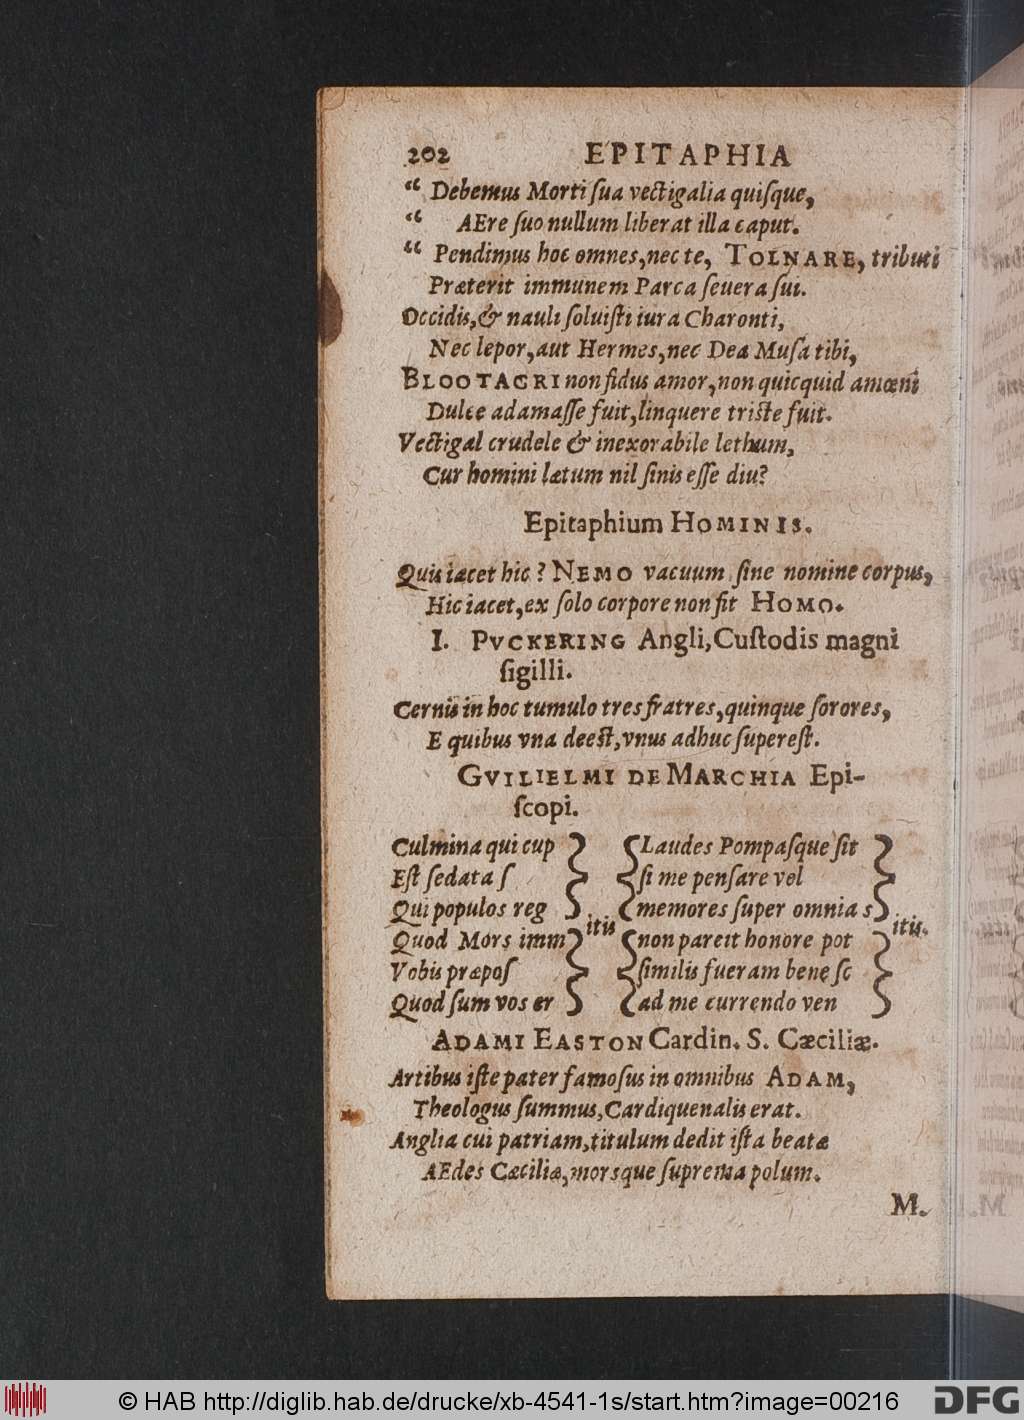 202 EPITAPHIA
“ Debemus Morti ſua vectigalia quiſque,
“ AEre ſuo nullum liberat illa caput.
“ Pendimus hoc omnes, nec te, TOLNARE, tributi
Præterit immunem Parca ſeuera ſui.
Occidis, & nauli ſoluiſti iura Charonti,
Nec lepor, aut Hermes, nec Dea Muſa tibi,
BLOOTACRI non fidus amor, non quicquid amœni
Dulce adamaſſe fuit, linquere triſte fuit.
Vectigal crudele & inexorabile lethum,
Cur homini lætum nil ſinis eſſe diu?
Epitaphium HOMINIS.
Quis iacet hic? NEMO vacuum ſine nomine corpus,
Hic iacet, ex ſolo corpore non fit HOMO.
I. PVCKERING Angli, Cuſtodis magni
ſigilli.
Cernis in hoc tumulo tres fratres, quinque ſorores,
E quibus vna deeſt, vnus adhuc ſupereſt.
GVILIELMI DE MARCHIA Epi-
ſcopi.
Culmina qui cup } { Laudes Pompaſque ſit }
Eſt ſedata ſ } { ſi me penſare vel }
Qui populos reg } itis { memores ſuper omnia s } itis.
Quod Mors imm } { non pareit honore pot }
Vobis præpoſ } { ſimilis fueram bene ſc }
Quod ſum vos er } { ad me currendo ven }
ADAMI EASTON Cardin. S. Cæciliæ.
Artibus iſte pater famoſus in omnibus ADAM,
Theologus ſummus, Cardiquenalis erat.
Anglia cui patriam, titulum dedit iſta beatæ
AEdes Cæciliæ, morsque ſuprema polum.
M.
© HAB http://diglib.hab.de/drucke/xb-4541-1s/start.htm?image=00216
DFG